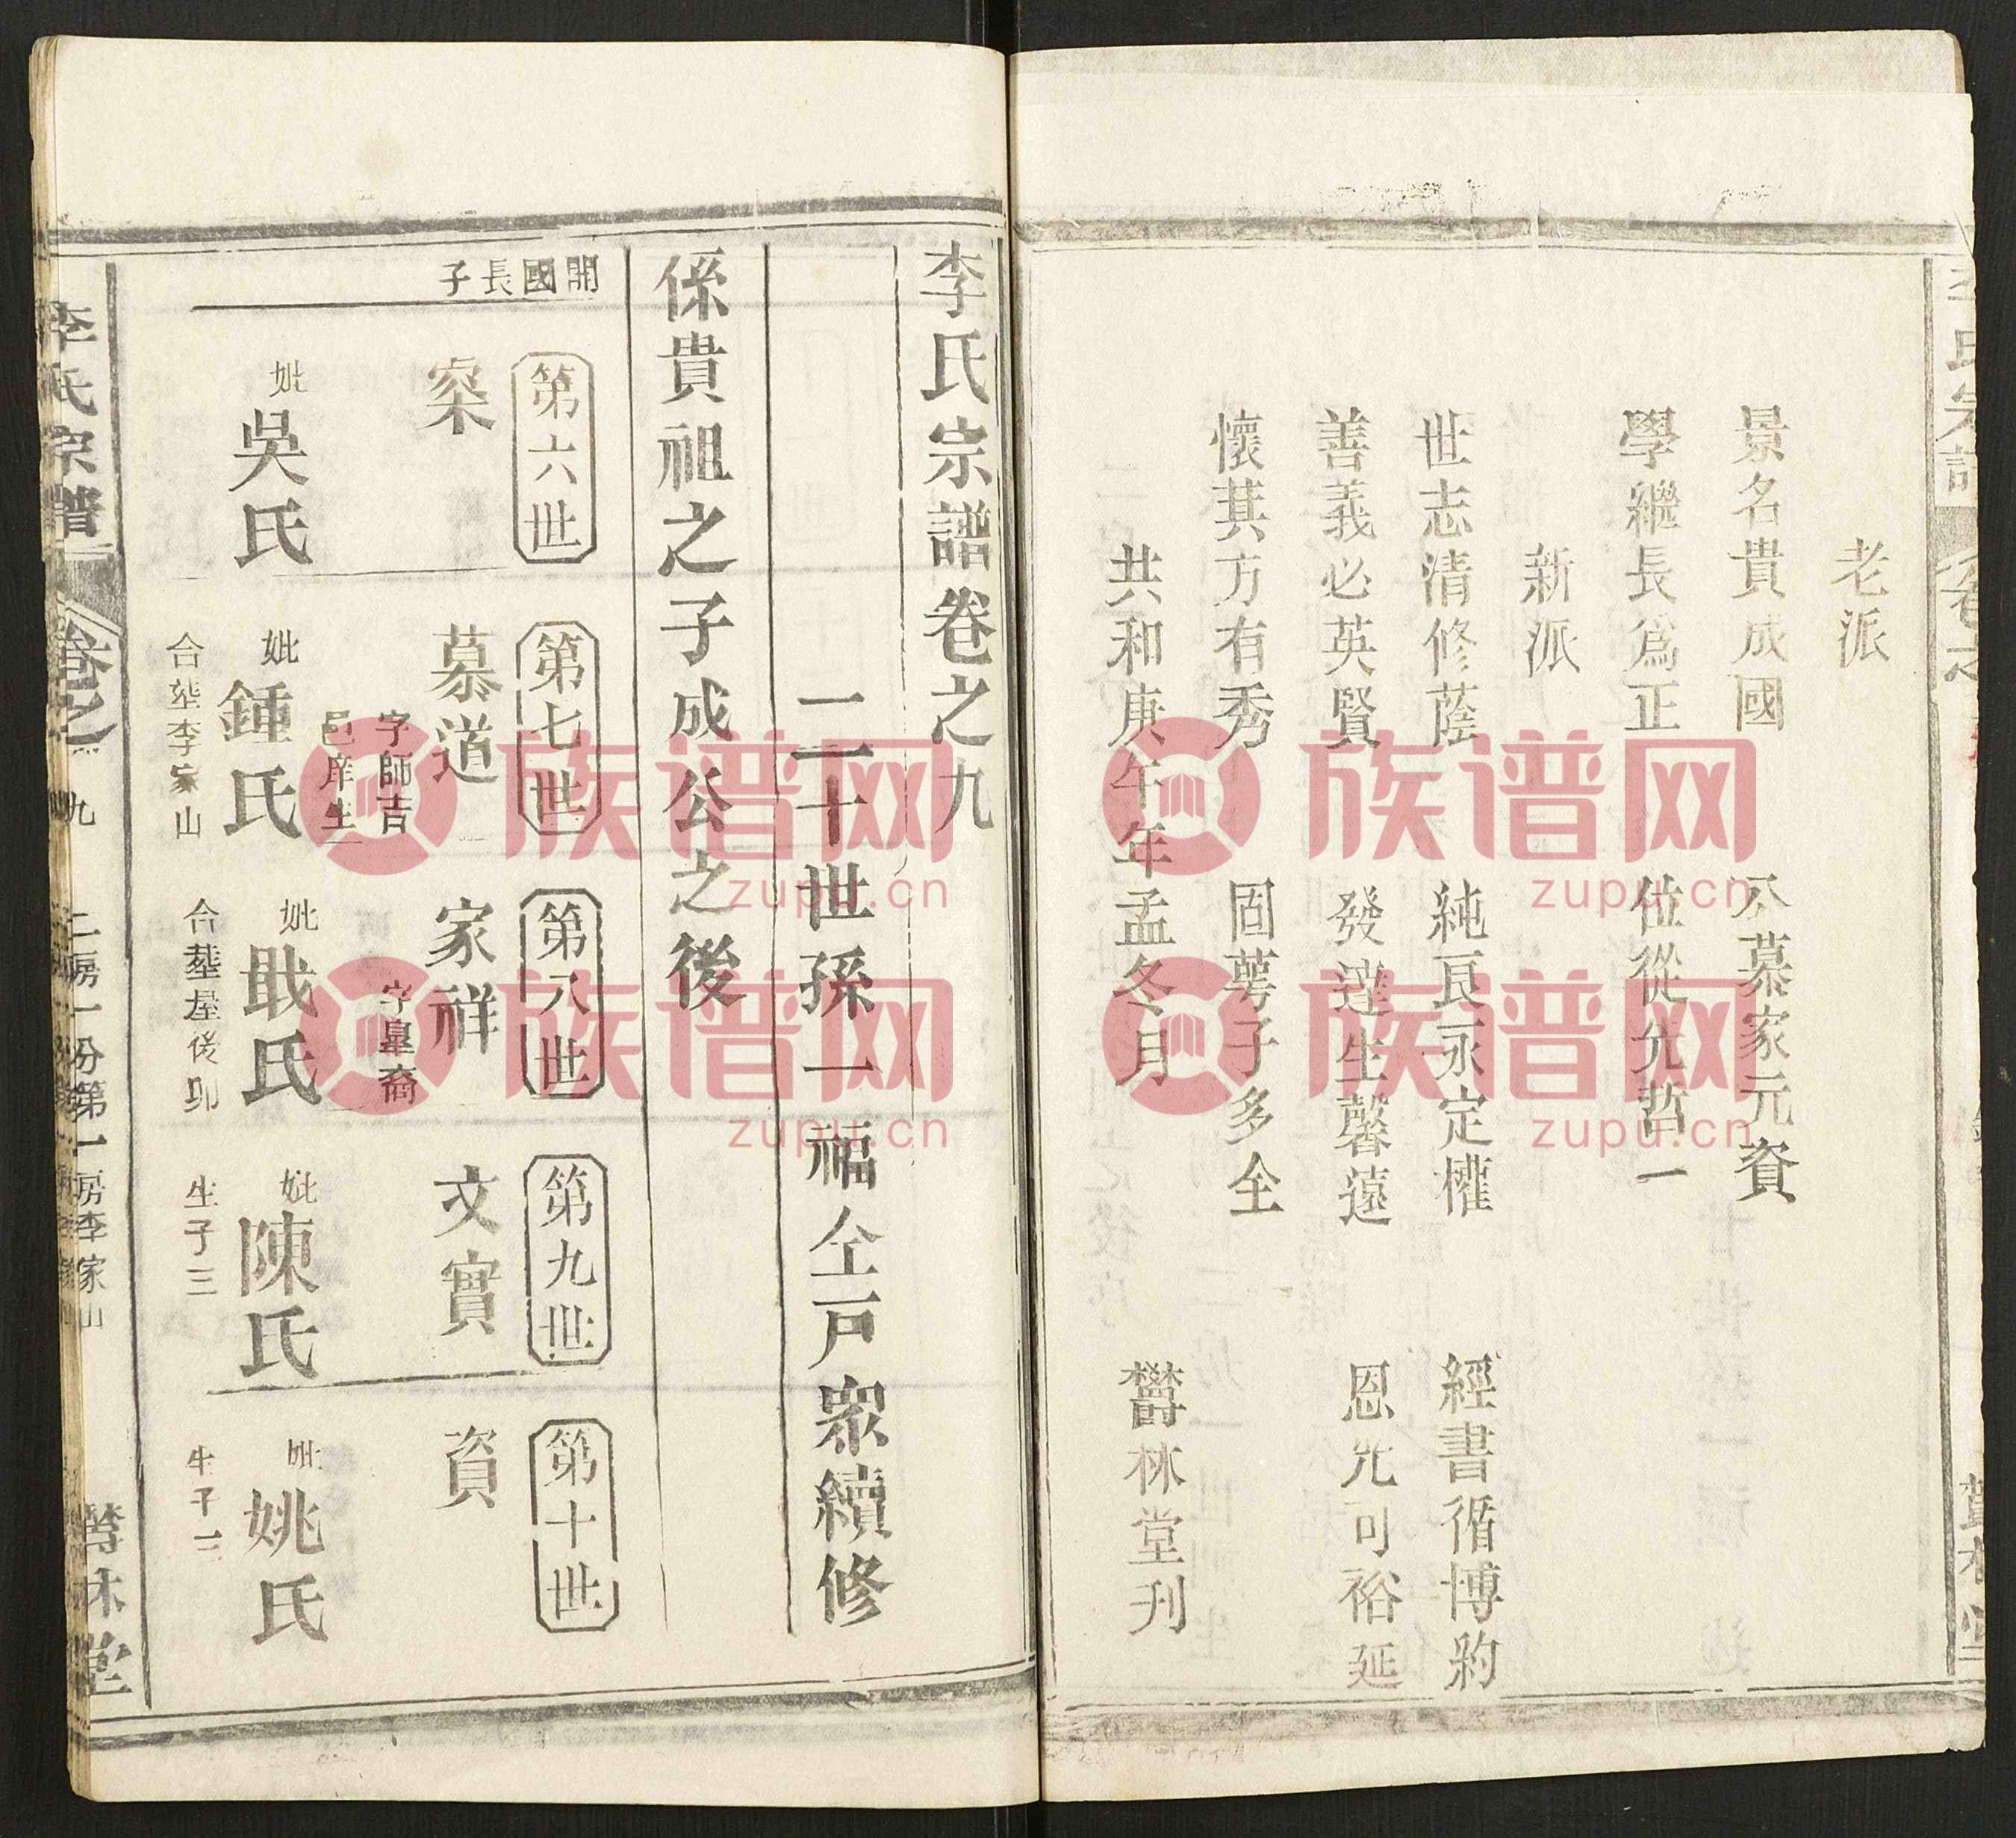 老派
景名貴成國 公慕家元資
學繼長爲正 位從先哲一
新派
世志清修蔭 純良永定權 經書循博約
善義必英賢 發達生馨遠 恩光可裕延
懷其方有秀 固蕚子多全
共和庚午年孟冬月 欎林堂刋
李氏宗譜卷之九
二十世孫一福仝戶眾續修
係貴祖之子成公之後
開國長子
第六世
寀
妣吳氏
第七世
慕道
字師吉
邑庠生
妣鍾氏
合塟李家山
第八世
家祥
字皐裔
妣戢氏
合塟屋後卯
第九世
文實
妣陳氏
生子三
第十世
資
妣姚氏
生子三
李氏宗譜 卷之 九 二房一分第一房李家山 欎林堂
族谱网
zupu.cn
族谱网
zupu.cn
族谱网
zupu.cn
族谱网
zupu.cn